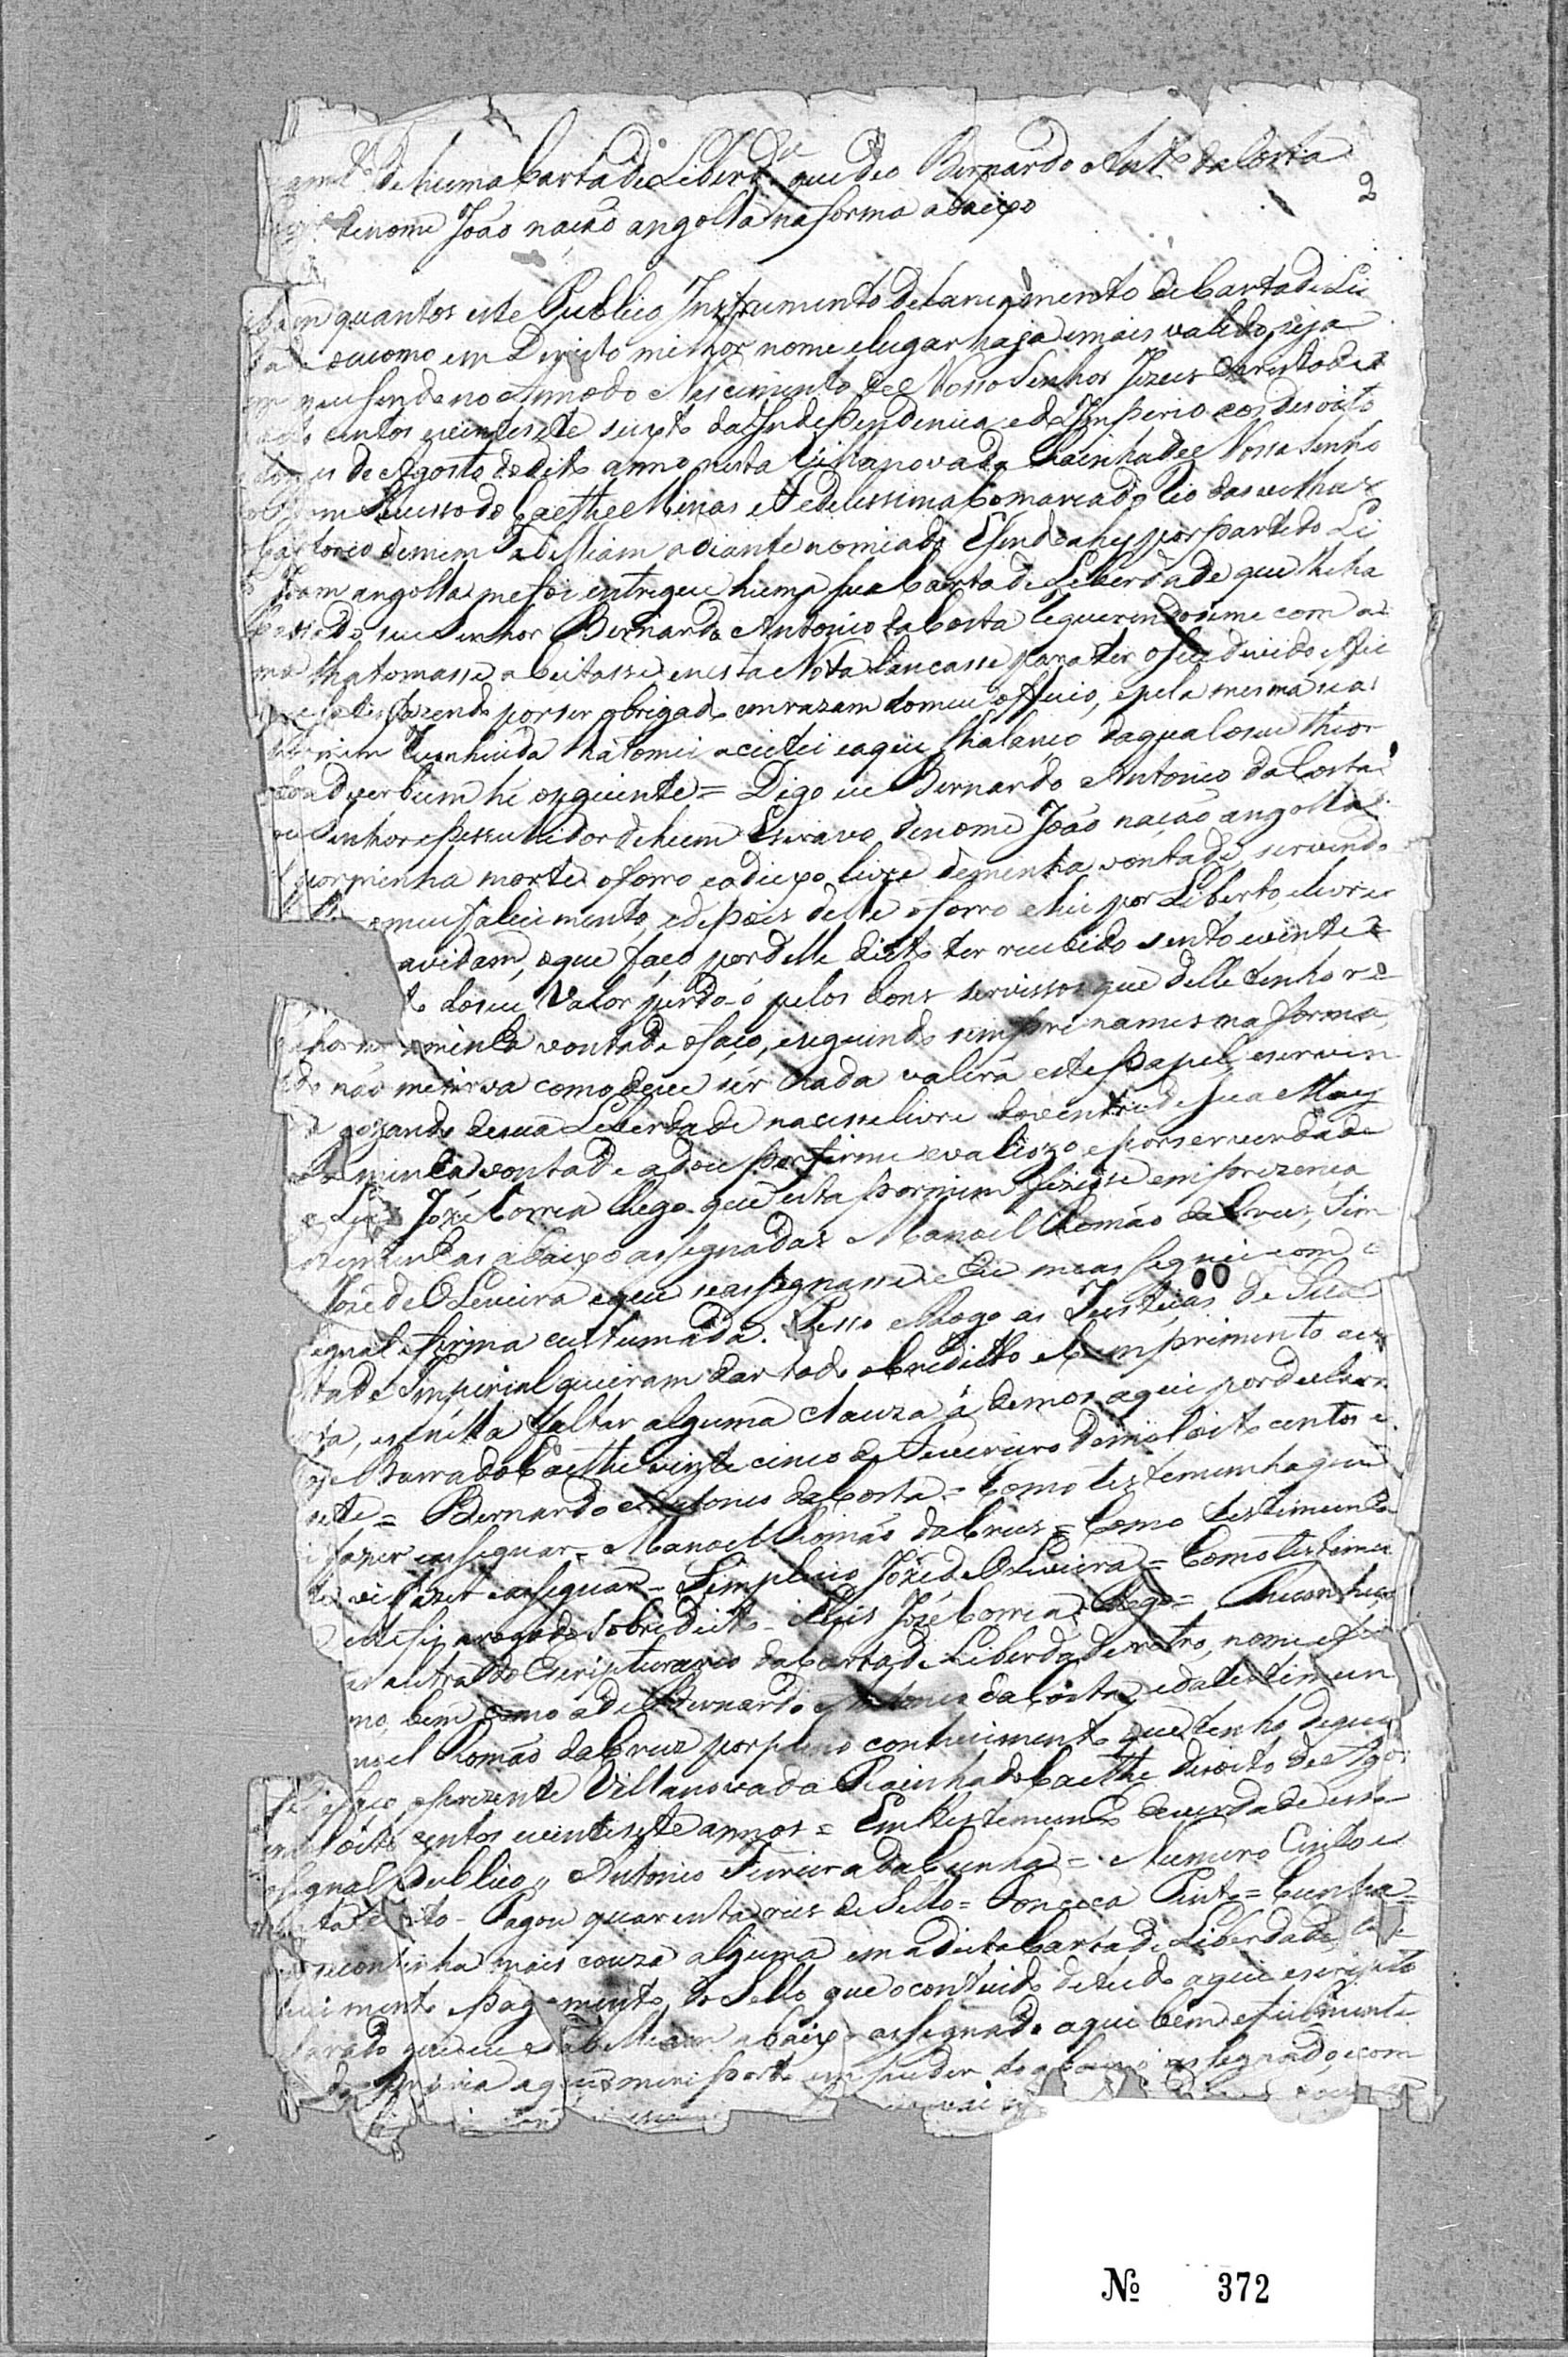 de huma Carta de Liberd.e que deo Bernardo Ant.o da Costa
2
de nome João nação angolla na forma abaixo
quantos este Publico Instrumento de Lancamento de Carta de Li
ou como em Direito milhor nome e lugar haja e mais valido seja
sendo no Anno do Nascimento de Nosso Senhor Jezus Christo de
centos e vinte sete sexto da Independencia e do Imperio aos desoito
de Agosto do dito anno nesta Villa nova da Rainha de Nossa Senho
Sucesso do Caethe Minas e Fedelissima Comarca do Rio das velhas
Cartorio de mim Tabelliam adiante nomiado E sendo ahy por parte do Li
Joam angolla me foi entregue huma sua Carta de Leberdade que lhe ha
passado seu Senhor Bernardo Antonio da Costa requerendome com a
lha tomasse a Ceitasse e nesta Nota lancasse para ter o seu divido effei
satisfazendo por ser obrigado em razam do meu officio, e pela mesma
mim reconhecida lhatomei aceitei e aqui lhalanço da qual o seu theor
de verbum hé o seguinte = Digo eu Bernardo Antonio da Costa
Senhor e pessuhidor de hum Escravo de nome João nação angolla
por minha morte o forro e o deixo livre de minha vontade, servindo
o meu falecimento, e depois delle o forro e hei por Liberto, e livre
avidam, o que faço por delle dicto ter recebido sento e vinte e
do seu Valor perdo-ó pelos bons servissos que delle tenho re
minha vontade o faço, e seguindo sempre na mesma forma,
não me sirva como deve ser nada valerá este papel, e servin
gozando de sua Leberdade nacesse livre do ventre de sua May
minha vontade a dou por firme e valiozo e por ser verdade
José Correa Rego que esta por mim fizesse em prezença
abaixo assegnadas Manoel Romão da Cruz, Sim
José de OLiveira e que se assegnasse e Eu me assegnei com o
signal e firma custumada. Pesso e Rogo as Justiças de Sua
Imperial queiram dar todo o Credito e Comprimento a es
e nella faltar alguma Clauza á hemos aqui por declara
Barra do Caethe vinte cinco de Fevereiro de mil oito centos e
sete = Bernardo Antonio da Costa = Como testemunha que
fazer e assegnar = Manoel Romão da Cruz = Como testemunha
vi fazer e assegnar - Simplicio José de OLiveira = Como testemu
esta fiz a rogo do sobredicto - Luis José Correa Rego = Reconheço
a Letra do Escripturario da Carta de Liberdade retro, nome e fir
mo, bem como a de Bernardo Antonio da Costa, e da testemun
noel Romão da Cruz por pleno conhecimento que tenho, de que
faço o prezente Villa nova da Rainha do Caethe desoito de Agos
oito centos e vinte sete annos = Em testemunho de verdade esta
signal Publico, Antonio Ferreira da Cunha = Numero Cento e
oito - Pagou quarenta reis de Sello = Fonceca Pinto = Cunha =
se continha mais couza alguma em a dicta Carta de Liberdade
e pagamento do Sello que o contiudo de tudo aqui escripto
que eu Tabelliam abaixo assegnado aqui bem e fielmente
a que me reporto em puder do abaixo assegnado, e com
№ 372